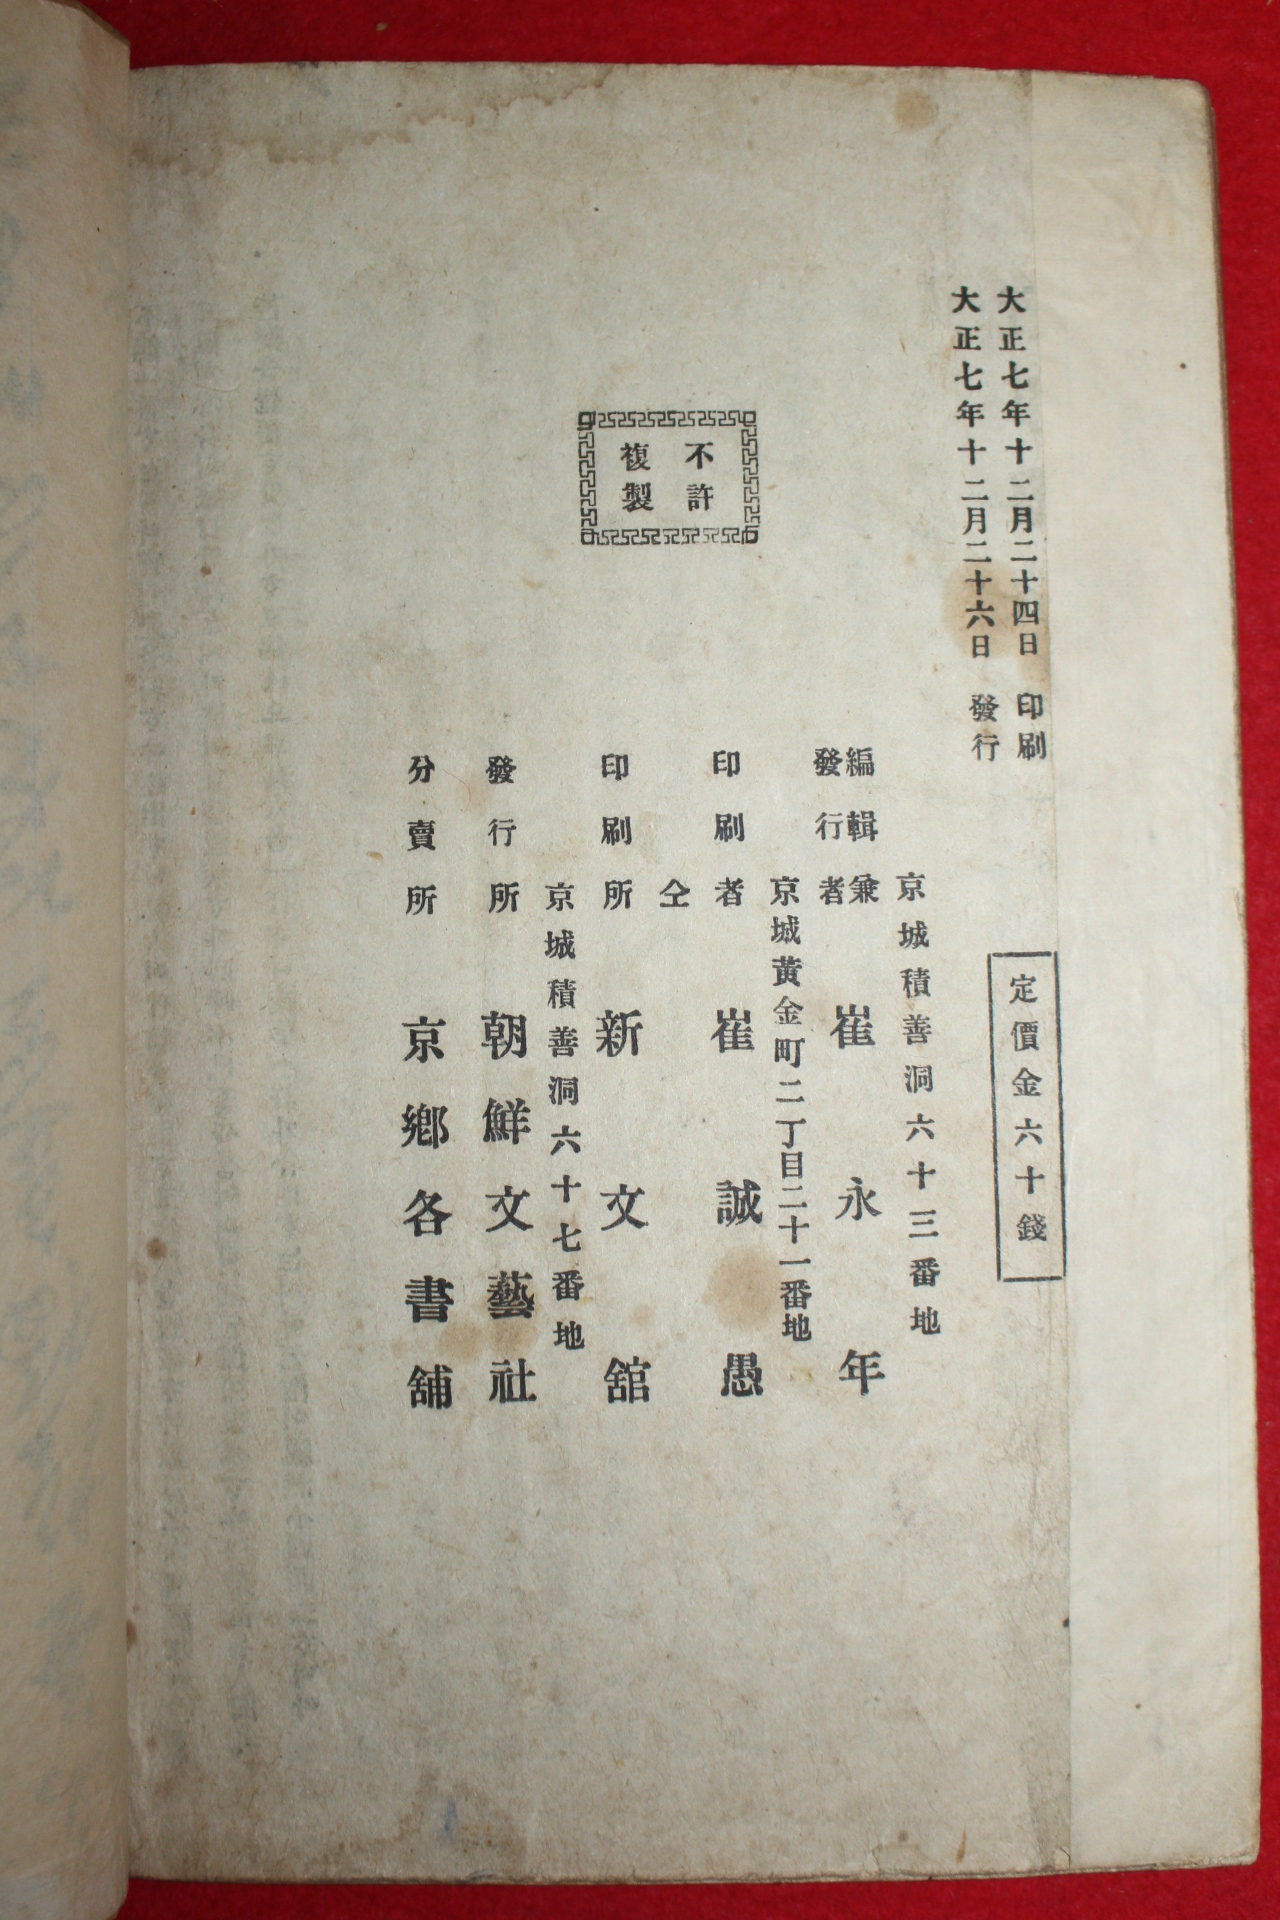 大正七年十二月二十四日 印刷
大正七年十二月二十六日 發行
定價金六十錢
不許
複製
京城積善洞六十三番地
編輯兼
發行者 崔永年
京城黃金町二丁目二十一番地
印刷者 崔誠愚
仝
印刷所 新文舘
京城積善洞六十七番地
發行所 朝鮮文藝社
分賣所 京鄉各書舖